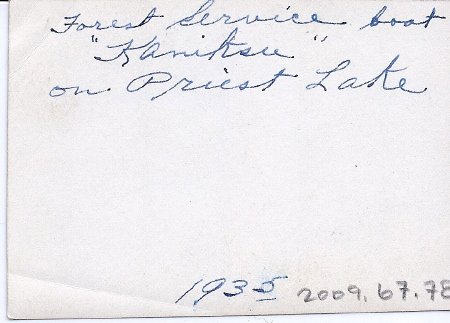 Forest Service boat
"Kaniksu"
on Priest Lake
1935 2009.67.78